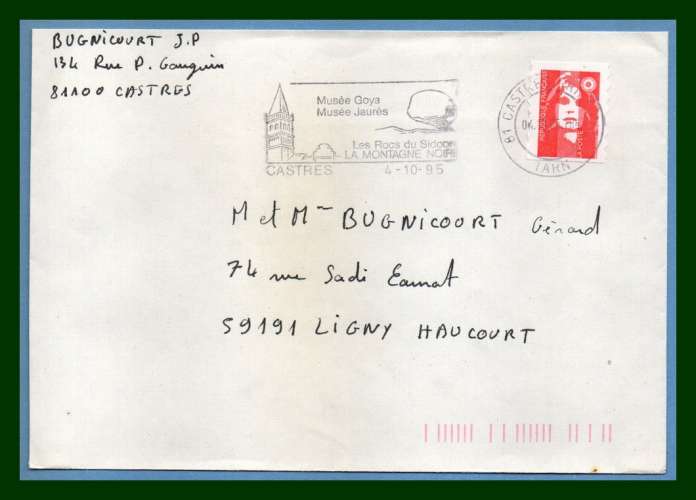 BUGNICOURT J.P
134 Rue P. Gauguin
81100 CASTRES
Musée Goya
Musée Jaurès
Les Rocs du Sidobre
LA MONTAGNE NOIRE
CASTRES 4-10-95
81 CASTRES
04
TARN
M et Mme BUGNICOURT Gérard
74 rue Sadi Carnot
59191 LIGNY HAUCOURT